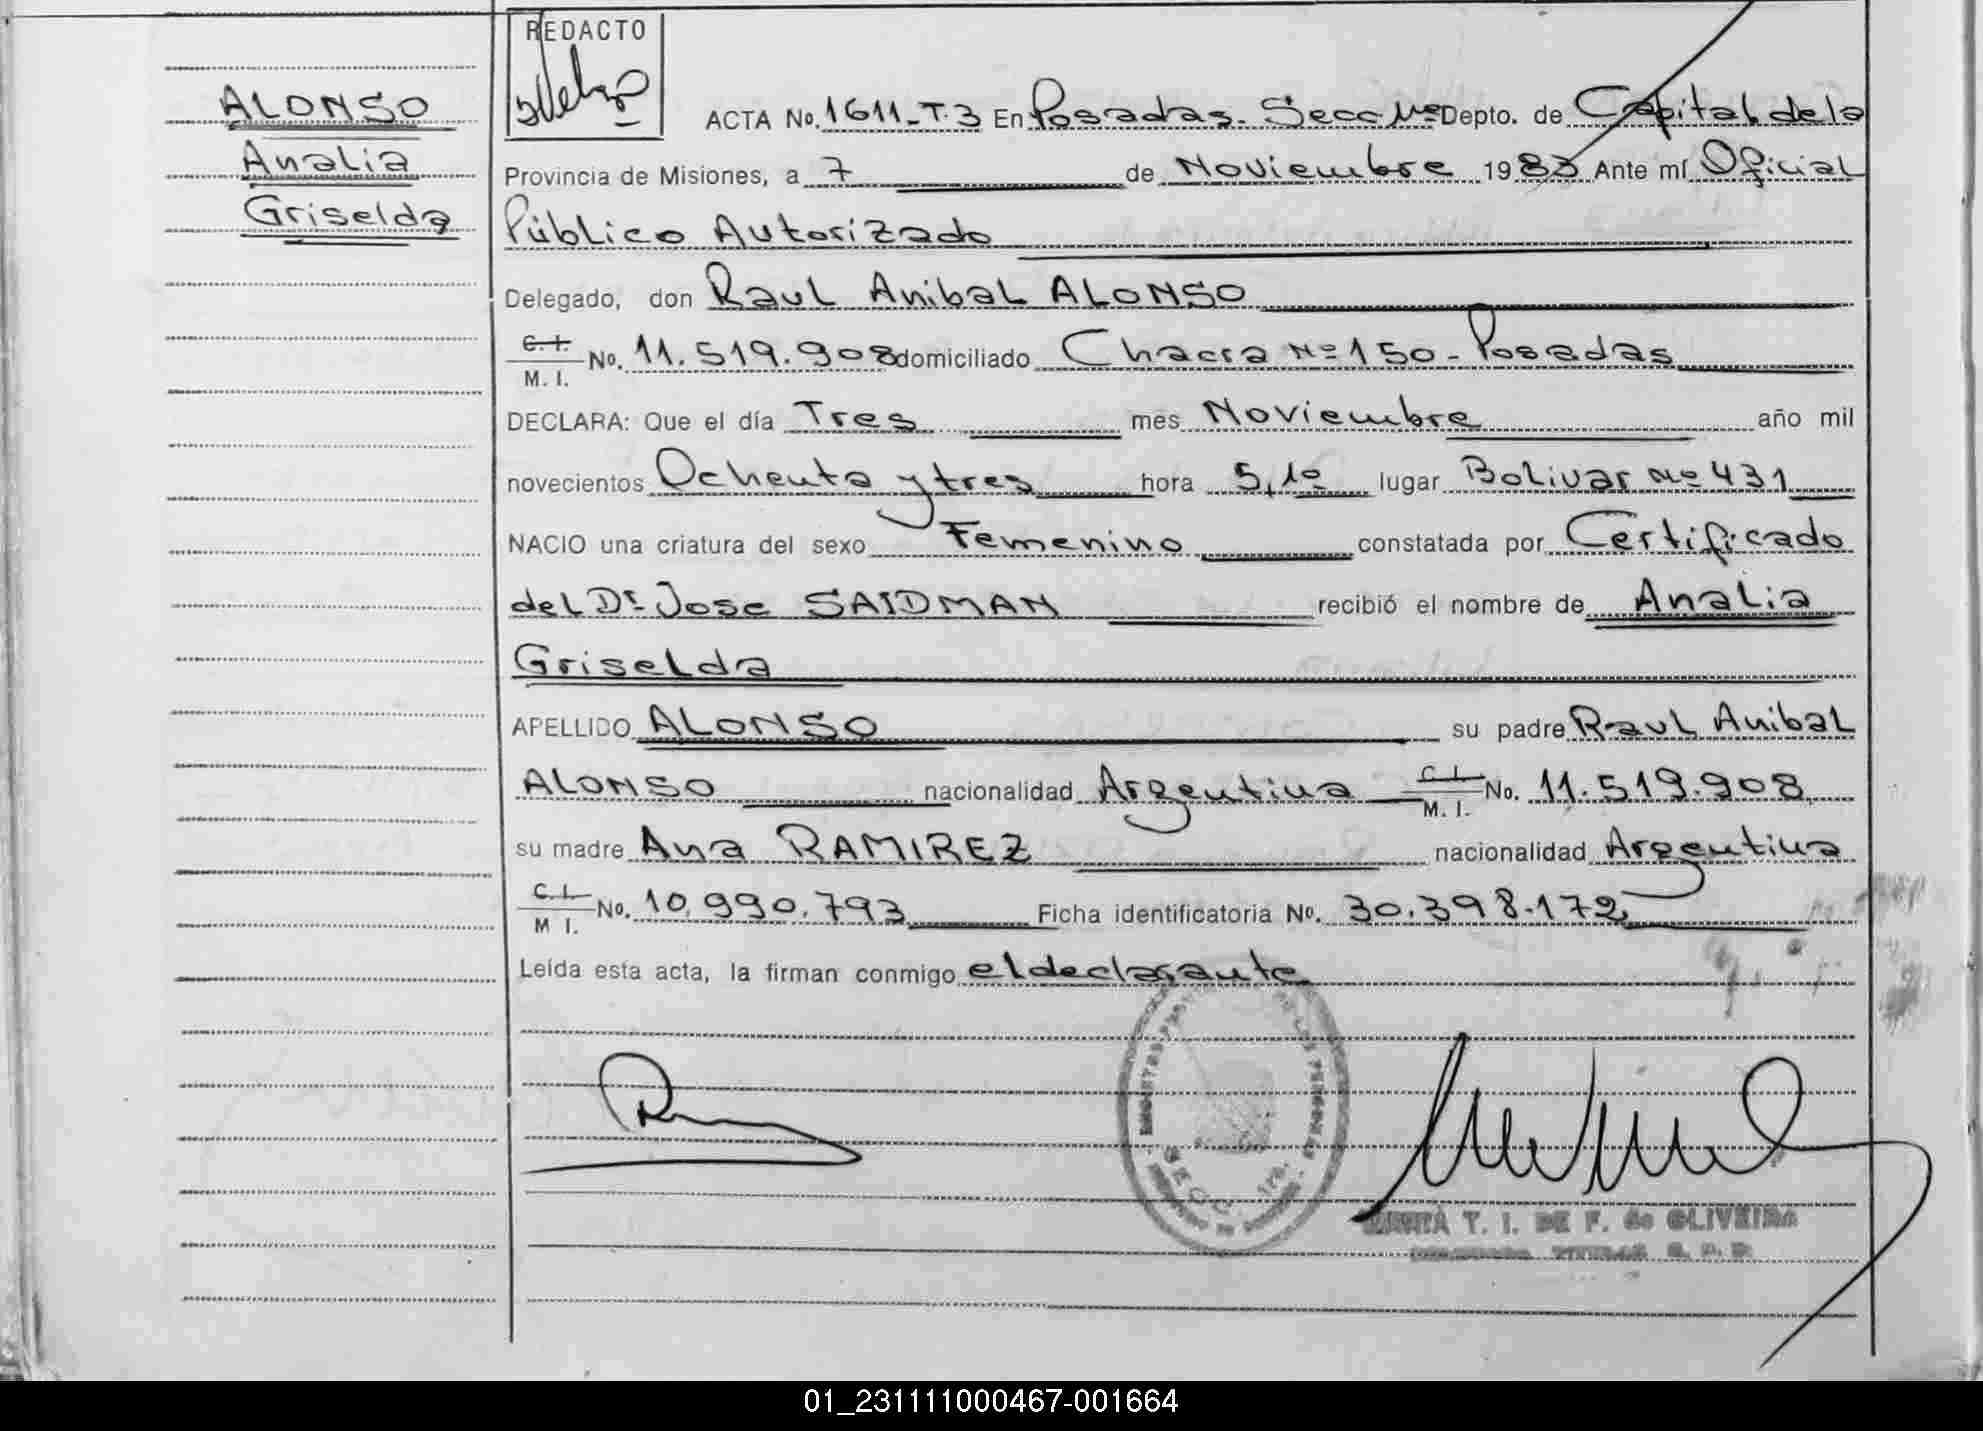 ALONSO
Analia
Griselda
REDACTO
ACTA No. 1611-T.3 En Posadas. Secc Depto. de Capital de la
Provincia de Misiones, a 7 de Noviembre 1983 Ante mí Oficial
Público Autorizado
Delegado, don Raul Anibal ALONSO
C.I.
M. I. No. 11.519.908 domiciliado Chacra Nº 150 - Posadas
DECLARA: Que el día Tres mes Noviembre año mil
novecientos Ochenta y tres hora 5,10 lugar Bolivar Nº 431
NACIO una criatura del sexo Femenino constatada por Certificado
del Dr Jose SAIDMAN recibió el nombre de Analia
Griselda
APELLIDO ALONSO su padre Raul Anibal
ALONSO nacionalidad Argentina C.I. M. I. No. 11.519.908
su madre Ana RAMIREZ nacionalidad Argentina
C.I. M I. No. 10.990.793 Ficha identificatoria No. 30.398.172
Leída esta acta, la firman conmigo el declarante
T. I. DE F. de OLIVEIRA
01_231111000467-001664